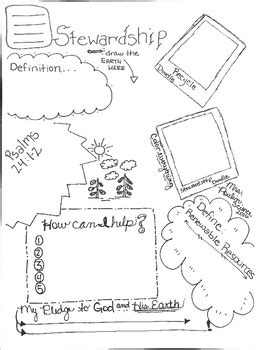 Stewardship
draw the
EARTH
HERE
Definition...
Recycle
Doodle
Psalms
24:1-2
Define
Renewable Resources
How can I help?
1
2
3
4
5
My Pledge to God and His Earth